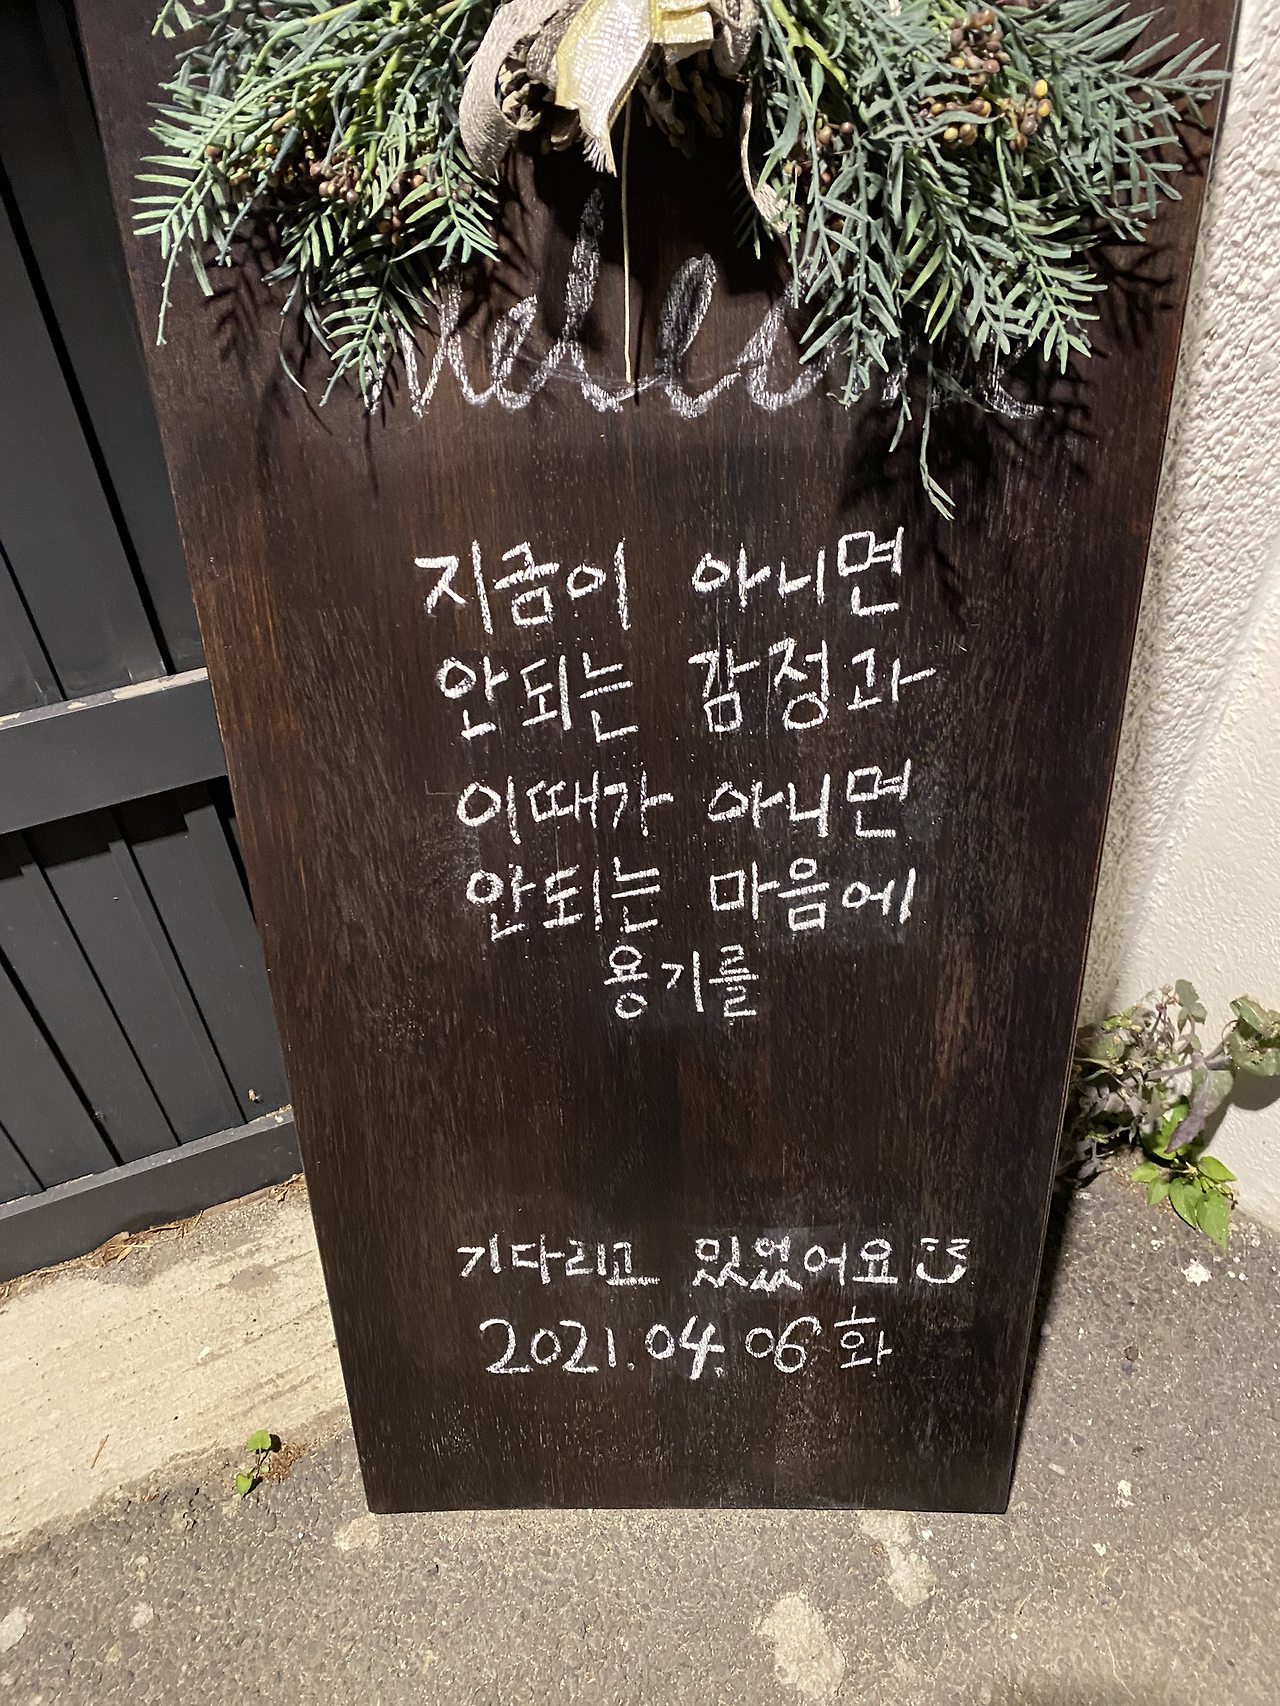 지금이 아니면
안되는 감정과
이때가 아니면
안되는 마음에
용기를
기다리고 있었어요
2021.04.06 화